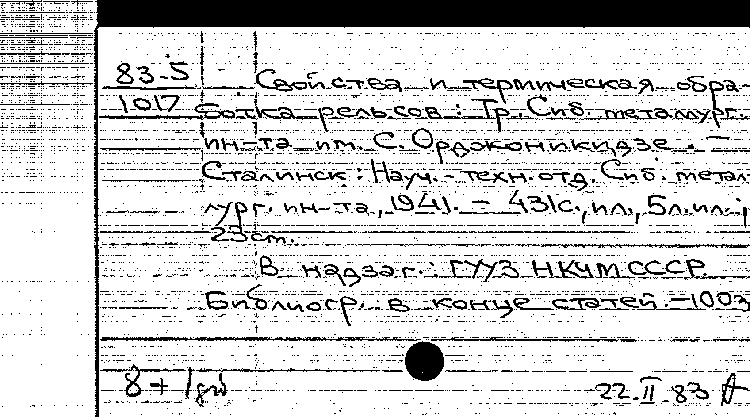 83-5
1017
Свойства и термическая обра-
ботка рельсов: Тр. Сиб. металлург.
ин-та им. С. Орджоникидзе. -
Сталинск: Науч.-техн. отд. Сиб. метал-
лург. ин-та, 1941. - 431с., ил., 5л. ил.;
23 cm.
В надзаг.: ГУУЗ НКЧМ СССР
Библиогр. в конце статей. - 1003
8+1
22.II.83